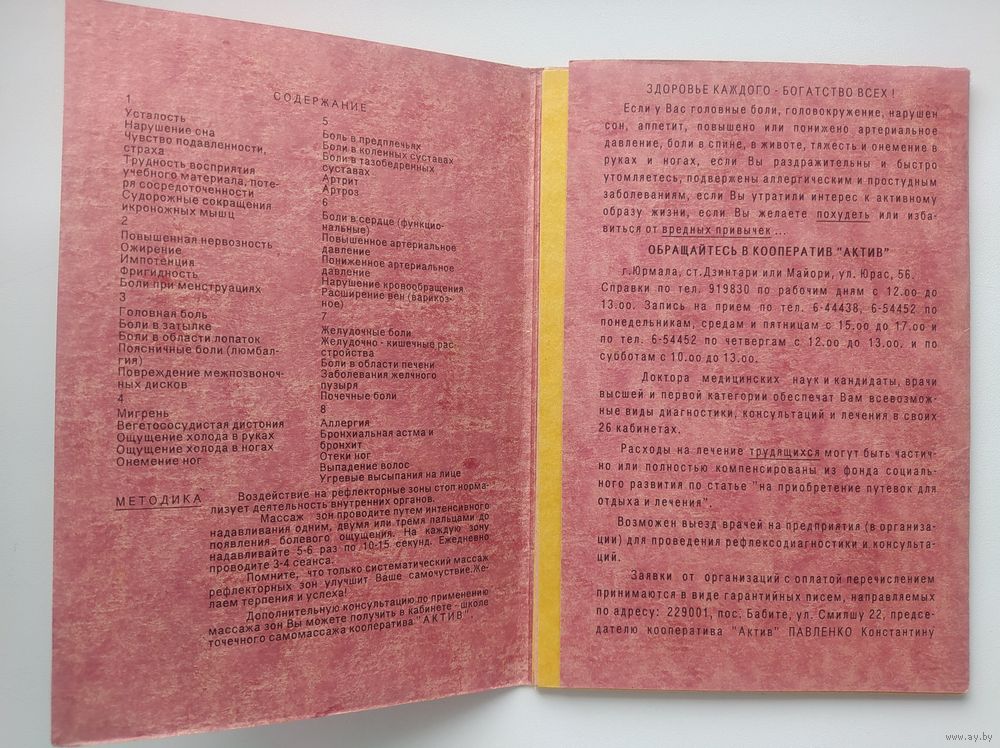 СОДЕРЖАНИЕ
1
Усталость
Нарушение сна
Чувство подавленности,
страха
Трудность восприятия
учебного материала, поте-
ря сосредоточенности
Судорожные сокращения
икроножных мышц
2
Повышенная нервозность
Ожирение
Импотенция
Фригидность
Боли при менструациях
3
Головная боль
Боли в затылке
Боли в области лопаток
Поясничные боли (люмбал-
гия)
Повреждение межпозвоноч-
ных дисков
4
Мигрень
Вегетососудистая дистония
Ощущение холода в руках
Ощущение холода в ногах
Онемение ног
5
Боль в предплечьях
Боли в коленных суставах
Боли в тазобедренных
суставах
Артрит
Артроз
6
Боли в сердце (функцио-
нальные)
Повышенное артериальное
давление
Пониженное артериальное
давление
Нарушение кровообращения
Расширение вен (варикоз-
ное)
7
Желудочные боли
Желудочно - кишечные рас-
стройства
Боли в области печени
Заболевания желчного
пузыря
Почечные боли
8
Аллергия
Бронхиальная астма и
бронхит
Отеки ног
Выпадение волос
Угревые высыпания на лице
МЕТОДИКА
Воздействие на рефлекторные зоны стоп норма-
лизует деятельность внутренних органов.
Массаж зон проводите путем интенсивного
надавливания одним, двумя или тремя пальцами до
появления болевого ощущения. На каждую зону
надавливайте 5-6 раз по 10-15 секунд. Ежедневно
проводите 3-4 сеанса.
Помните, что только систематический массаж
рефлекторных зон улучшит Ваше самочувствие.Же-
лаем терпения и успеха!
Дополнительную консультацию по применению
массажа зон Вы можете получить в кабинете - школе
точечного самомассажа кооператива "АКТИВ".
ЗДОРОВЬЕ КАЖДОГО - БОГАТСТВО ВСЕХ !
Если у Вас головные боли, головокружение, нарушен
сон, аппетит, повышено или понижено артериальное
давление, боли в спине, в животе, тяжесть и онемение в
руках и ногах, если Вы раздражительны и быстро
утомляетесь, подвержены аллергическим и простудным
заболеваниям, если Вы утратили интерес к активному
образу жизни, если Вы желаете похудеть или изба-
виться от вредных привычек ...
ОБРАЩАЙТЕСЬ В КООПЕРАТИВ "АКТИВ"
г.Юрмала, ст.Дзинтари или Майори, ул. Юрас, 56.
Справки по тел. 919830 по рабочим дням с 12.оо до
13.оо. Запись на прием по тел. 6-44438, 6-54452 по
понедельникам, средам и пятницам с 15.оо до 17.оо и
по тел. 6-54452 по четвергам с 12.оо до 13.оо и по
субботам с 10.оо до 13.оо.
Доктора медицинских наук и кандидаты, врачи
высшей и первой категории обеспечат Вам всевозмож-
ные виды диагностики, консультаций и лечения в своих
26 кабинетах.
Расходы на лечение трудящихся могут быть частич-
но или полностью компенсированы из фонда социаль-
ного развития по статье "на приобретение путевок для
отдыха и лечения".
Возможен выезд врачей на предприятия (в организа-
ции) для проведения рефлексодиагностики и консульта-
ций.
Заявки от организаций с оплатой перечислением
принимаются в виде гарантийных писем, направляемых
по адресу: 229001, пос. Бабите, ул. Смилшу 22, предсе-
дателю кооператива "Актив" ПАВЛЕНКО Константину
www.ay.by